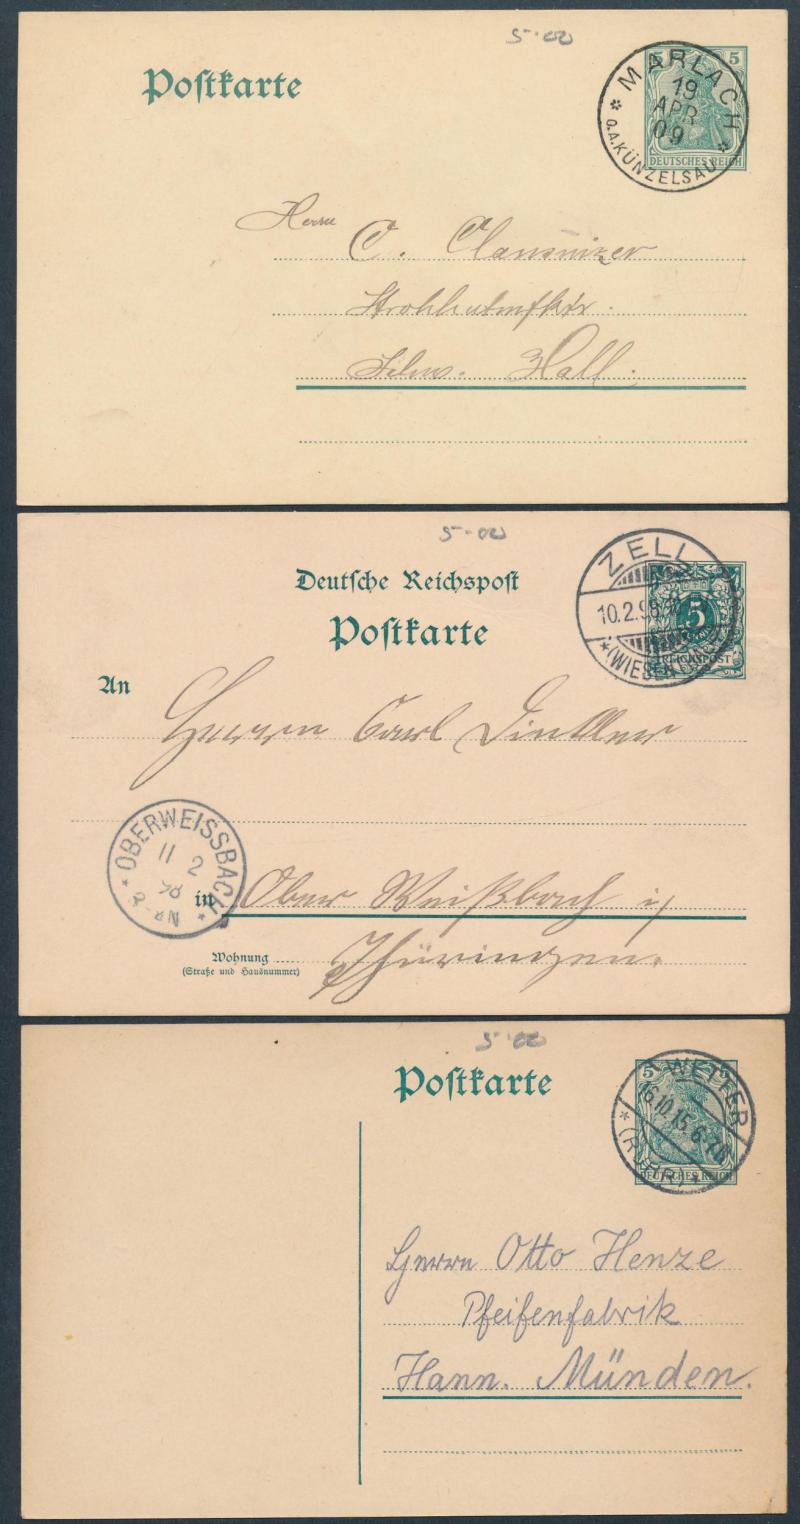 5.00
Postkarte
5 5
DEUTSCHES REICH
MARLACH
19
APR
09
* O.A.KÜNZELSAU *
Herrn
C. Clausnizer
Strohhutfbkr.
Hall.
5-00
Deutsche Reichspost
Postkarte
5
REICHSPOST
ZELL
10.2.98
An
Herrn Carl Dintler
* OBERWEISSBACH *
11 2
98
in Ober Weißbach i/
Wohnung
(Straße und Hausnummer)
Thüringen.
5.00
Postkarte
5 5
DEUTSCHES REICH
WETTER
16.10.15. 6-7N
* (RUHR) *
Herrn Otto Henze
Pfeifenfabrik
Hann. Münden.